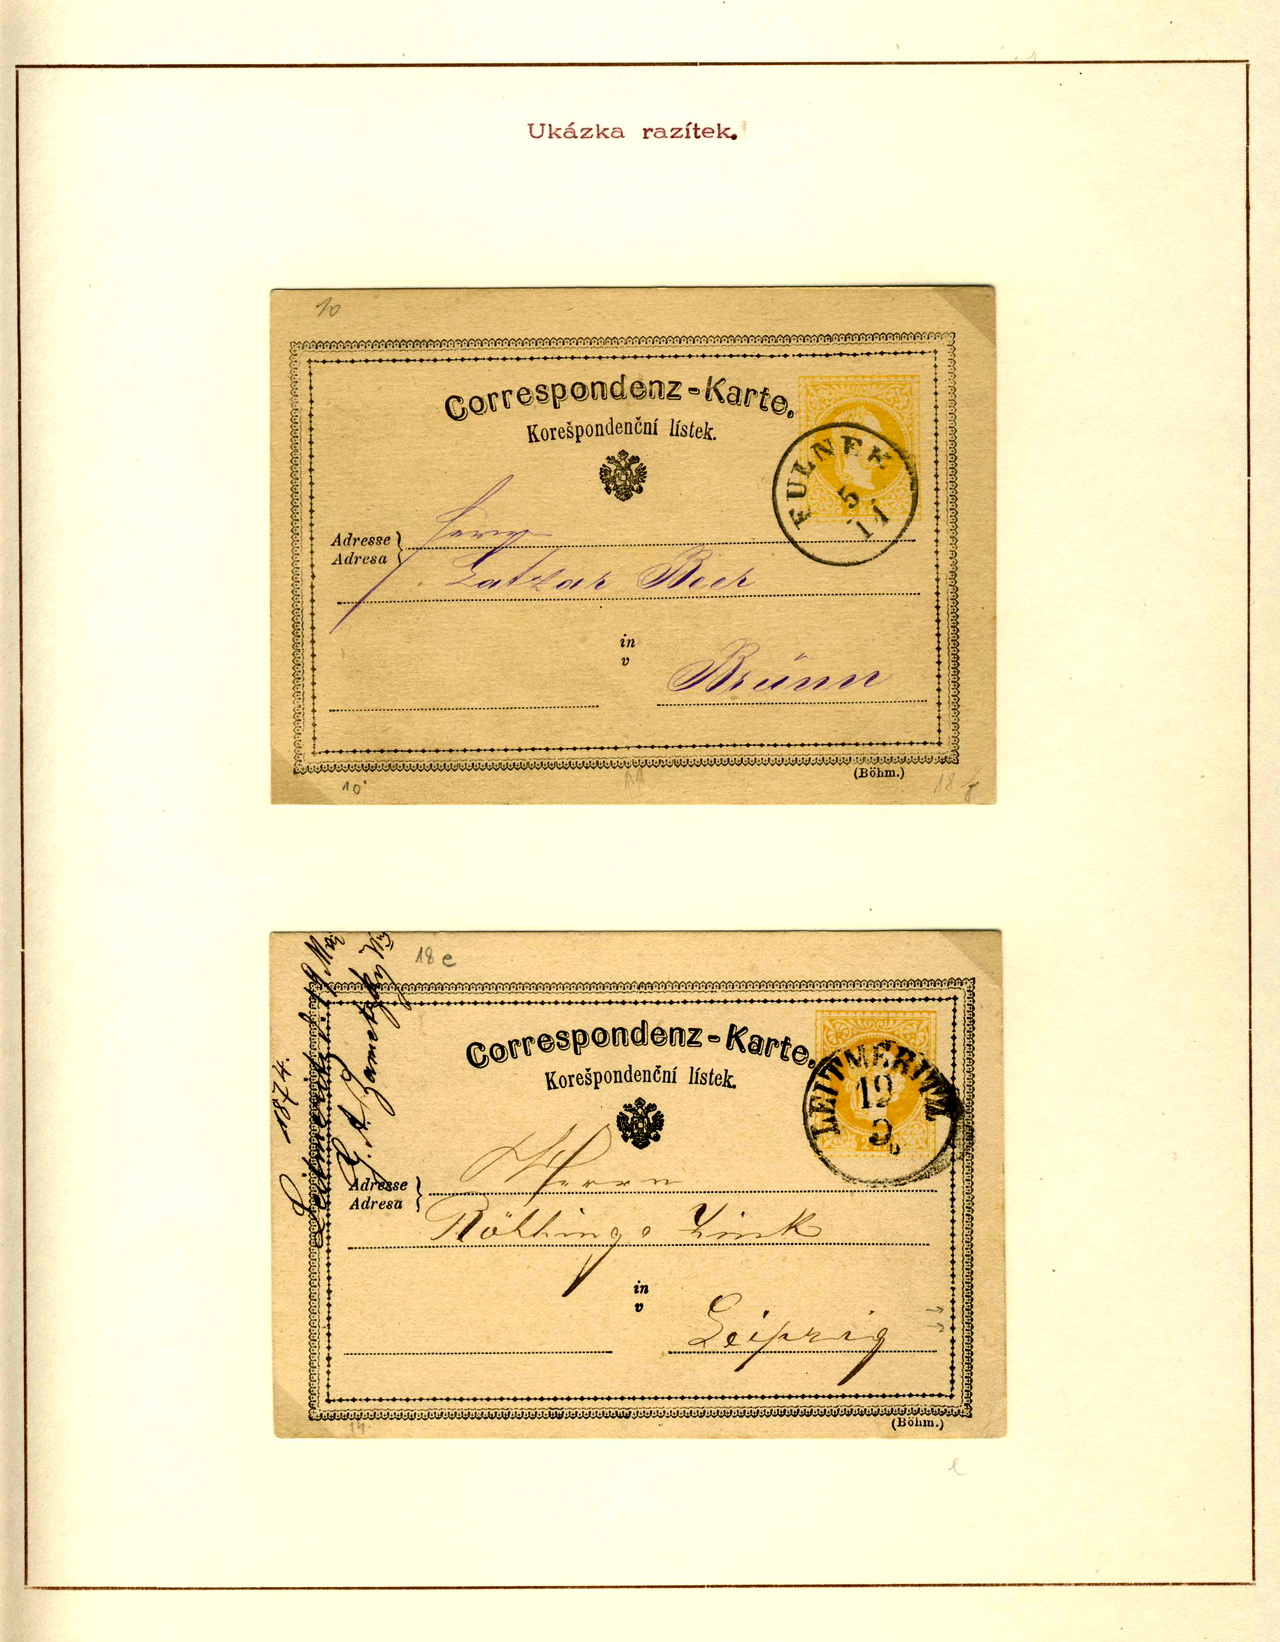 Ukázka razítek.
10
Correspondenz-Karte.
Korešpondenční lístek.
FULNEK
5
11
Adresse
Adresa
Herrn
Latzar Beer
in
v
Brünn
(Böhm.)
10
18 f
18 e
Correspondenz-Karte.
Korešpondenční lístek.
LEITMERITZ
19
9
Leitmeritz 19
1874.
Adresse
Adresa
Herrn
Link
in
v
Leipzig
(Böhm.)
14
e